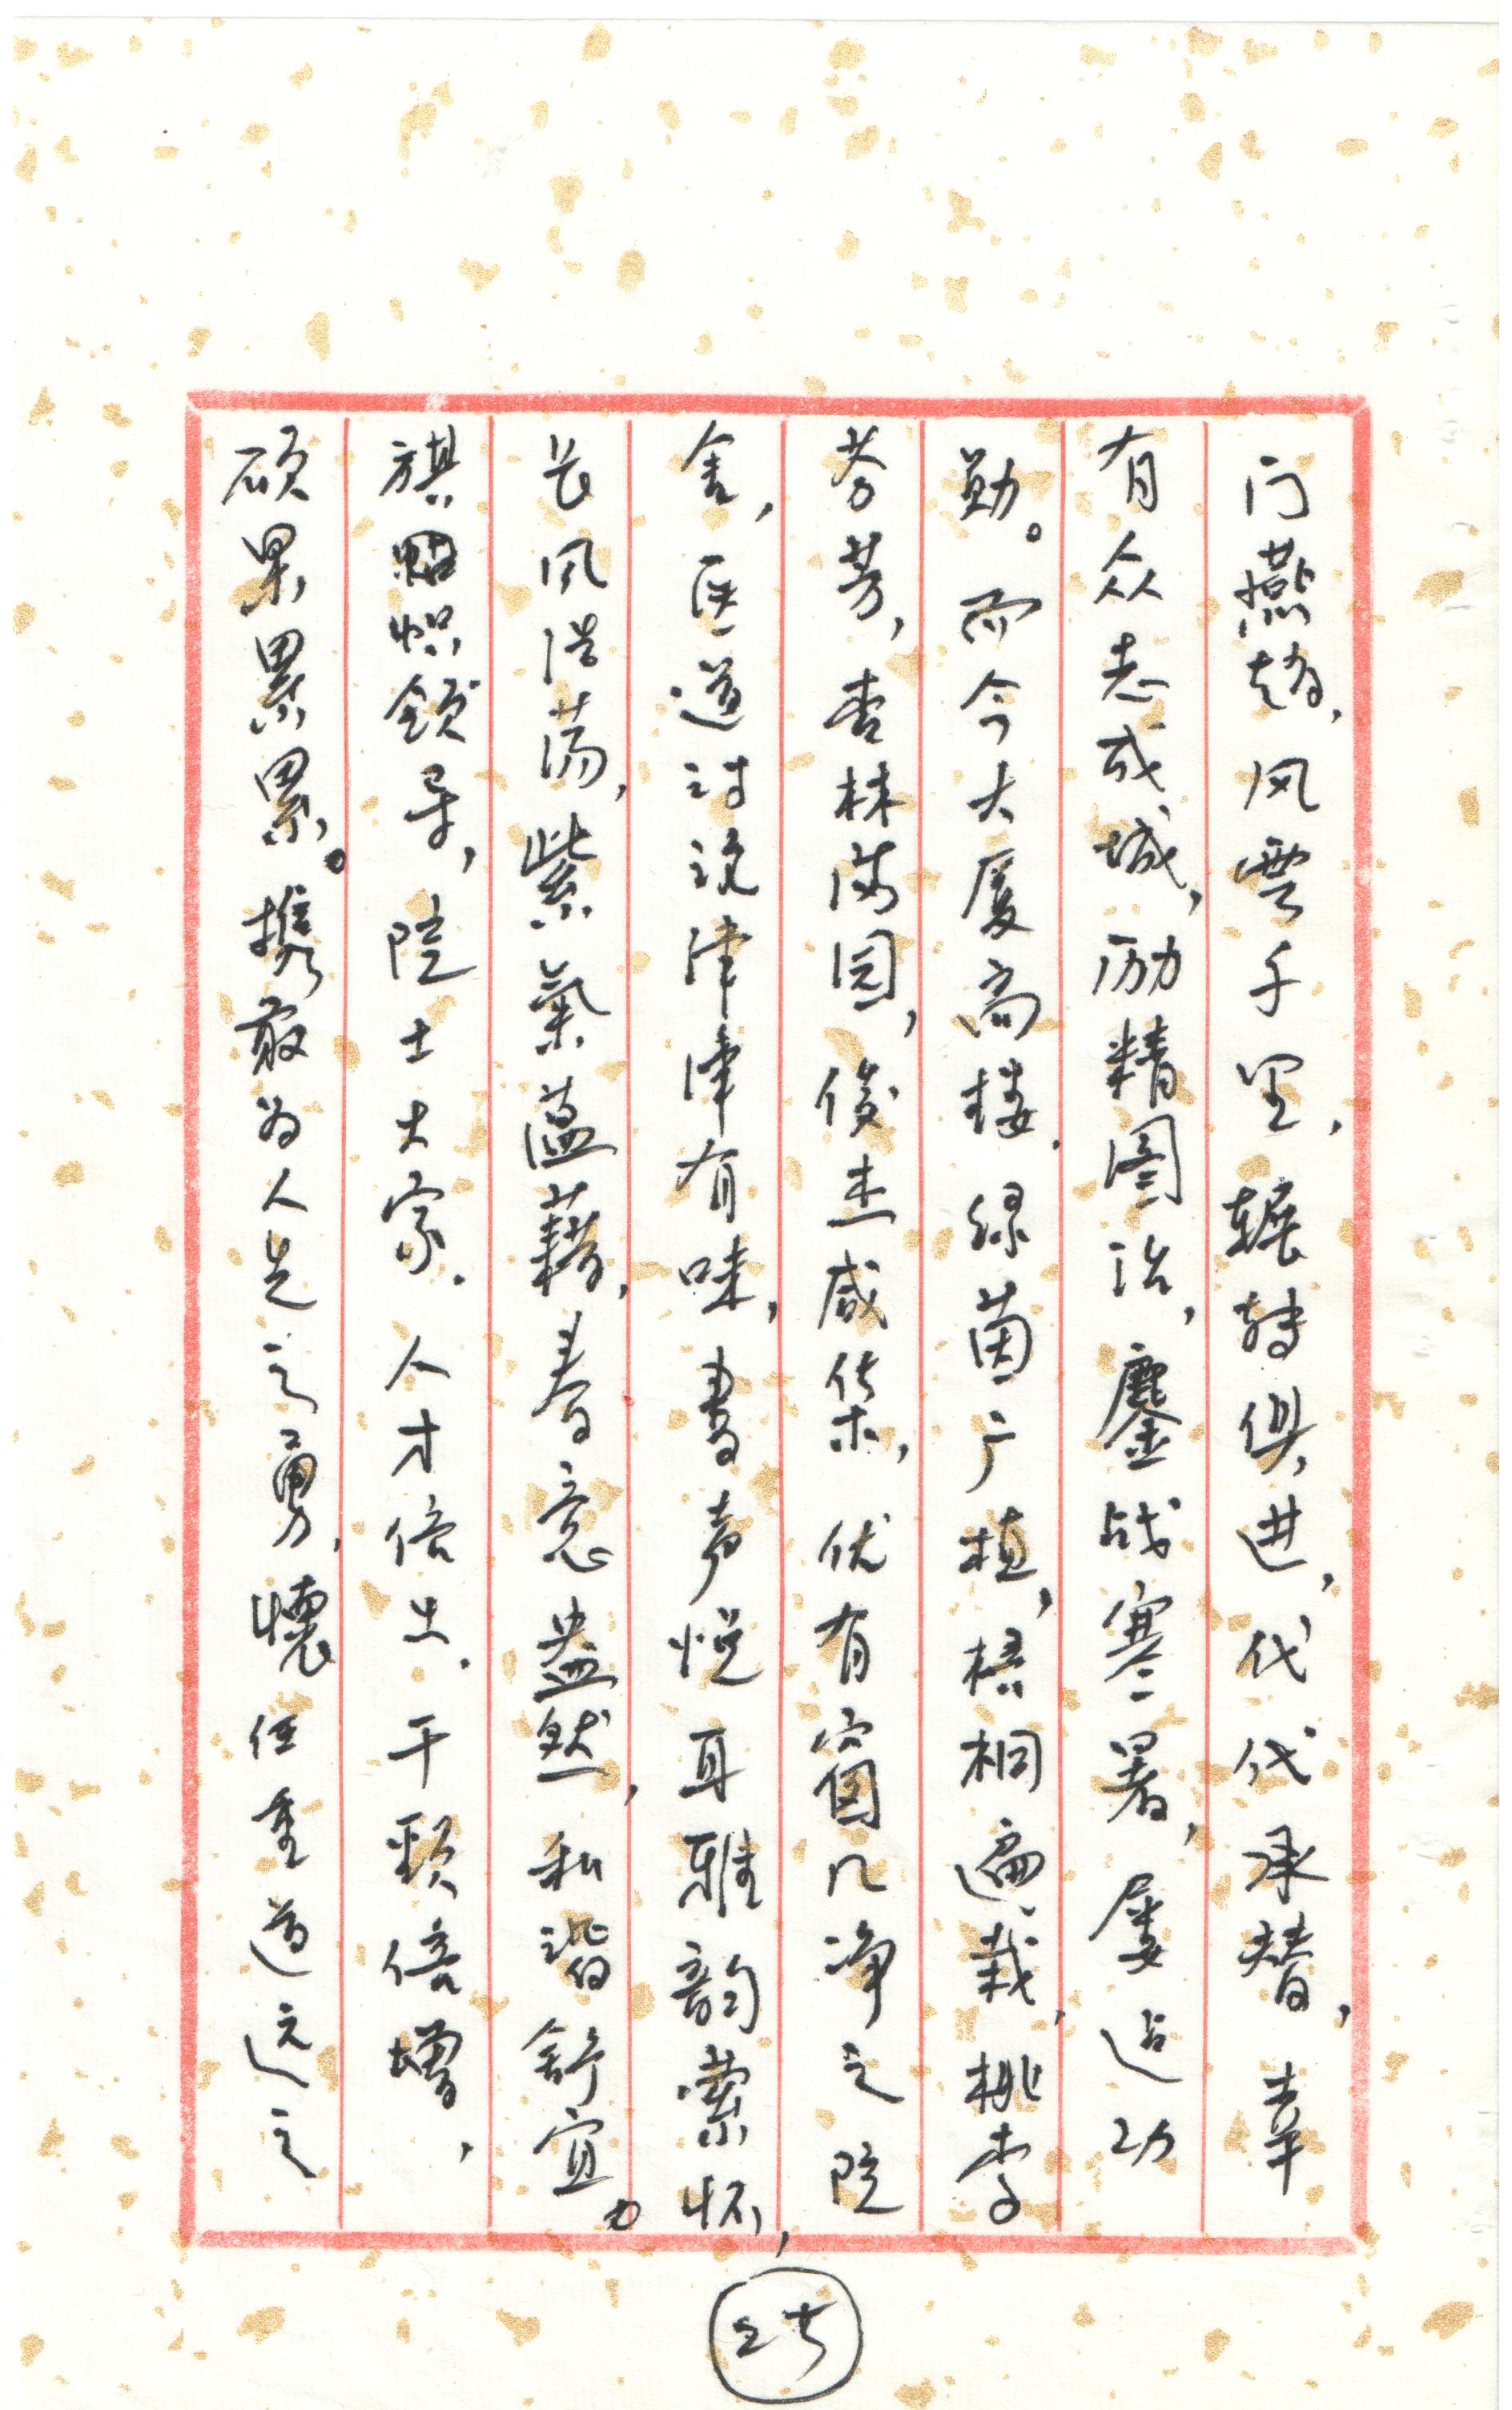 门燕赵，风雲千里，辗转俱进，代代承替，幸
有众志成城，励精图治，鏖战寒暑，屡迠功
勋。而今大厦高楼，绿茵广植，梧桐遍栽，桃李
芬芳，杏林满园，俊杰咸集，优有窗几净之院
舍，医道讨说津津有味，書声悦耳雅韵萦怀，
长风浩荡，紫氣蕴藉，春意盎然，和谐舒宜。
旗帜领导，院士大家，人才倍出，干劲倍增，
硕果累累。携敢为人先之勇，懷任重道远之